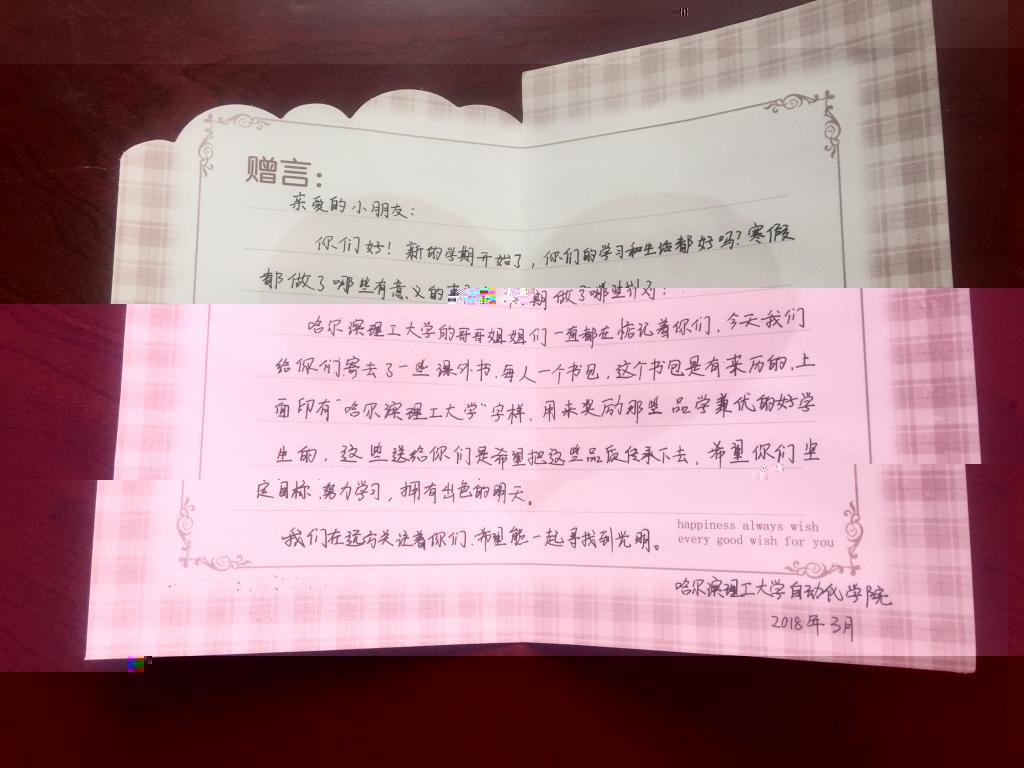 赠言：
亲爱的小朋友：
你们好！新的学期开始了，你们的学习和生活都好吗？寒假
都做了哪些有意义的事 期做了哪些计划？
哈尔滨理工大学的哥哥姐姐们一直都在惦记着你们，今天我们
给你们寄去了一些课外书，每人一个书包，这个书包是有来历的，上
面印有“哈尔滨理工大学”字样，用来奖励那些品学兼优的好学
生的，这些送给你们是希望把这些品质传承下去，希望你们坚
定目标，努力学习，拥有出色的明天。
我们在远方关注着你们，希望能一起寻找到光明。
happiness always wish
every good wish for you
哈尔滨理工大学自动化学院
2018年3月